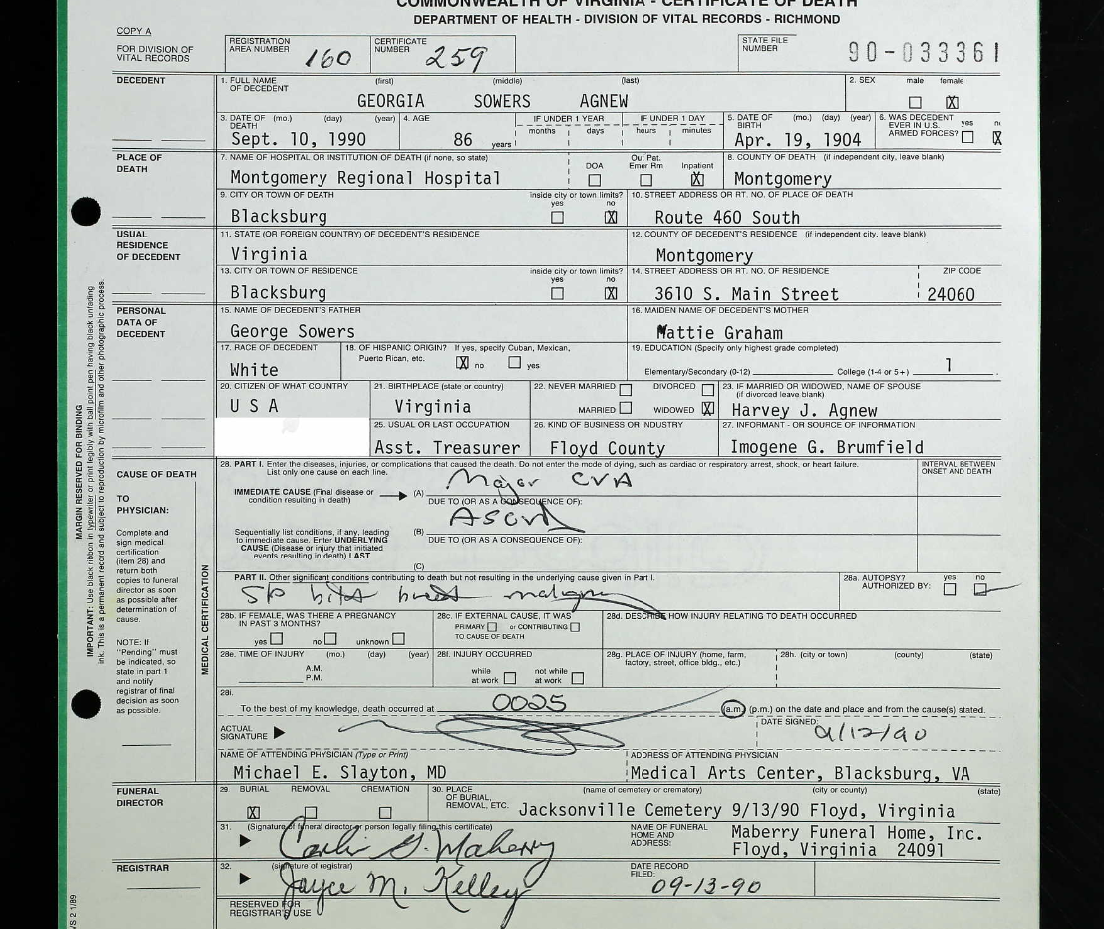 COMMONWEALTH OF VIRGINIA - CERTIFICATE OF DEATH
DEPARTMENT OF HEALTH - DIVISION OF VITAL RECORDS - RICHMOND
COPY A
FOR DIVISION OF VITAL RECORDS
REGISTRATION AREA NUMBER 160
CERTIFICATE NUMBER 259
STATE FILE NUMBER 90-033361
DECEDENT
1. FULL NAME OF DECEDENT (first) (middle) (last)
GEORGIA SOWERS AGNEW
2. SEX male female X
3. DATE OF DEATH (mo.) (day) (year)
Sept. 10, 1990
4. AGE 86 years
IF UNDER 1 YEAR months days
IF UNDER 1 DAY hours minutes
5. DATE OF BIRTH (mo.) (day) (year)
Apr. 19, 1904
6. WAS DECEDENT EVER IN U.S. ARMED FORCES? yes X
PLACE OF DEATH
7. NAME OF HOSPITAL OR INSTITUTION OF DEATH (if none, so state)
Montgomery Regional Hospital
DOA Ou. Pat. Emer Rm Inpatient X
8. COUNTY OF DEATH (if independent city, leave blank)
Montgomery
9. CITY OR TOWN OF DEATH inside city or town limits? yes no X
Blacksburg
10. STREET ADDRESS OR RT. NO. OF PLACE OF DEATH
Route 460 South
USUAL RESIDENCE OF DECEDENT
11. STATE (OR FOREIGN COUNTRY) OF DECEDENT'S RESIDENCE
Virginia
12. COUNTY OF DECEDENT'S RESIDENCE (if independent city, leave blank)
Montgomery
13. CITY OR TOWN OF RESIDENCE inside city or town limits? yes no X
Blacksburg
14. STREET ADDRESS OR RT. NO. OF RESIDENCE ZIP CODE
3610 S. Main Street 24060
PERSONAL DATA OF DECEDENT
15. NAME OF DECEDENT'S FATHER
George Sowers
16. MAIDEN NAME OF DECEDENT'S MOTHER
Mattie Graham
17. RACE OF DECEDENT
White
18. OF HISPANIC ORIGIN? If yes, specify Cuban, Mexican, Puerto Rican, etc. X no yes
19. EDUCATION (Specify only highest grade completed)
Elementary/Secondary (0-12) College (1-4 or 5+) 1
20. CITIZEN OF WHAT COUNTRY
U S A
21. BIRTHPLACE (state or country)
Virginia
22. NEVER MARRIED DIVORCED
MARRIED WIDOWED X
23. IF MARRIED OR WIDOWED, NAME OF SPOUSE (if divorced leave blank)
Harvey J. Agnew
25. USUAL OR LAST OCCUPATION
Asst. Treasurer
26. KIND OF BUSINESS OR INDUSTRY
Floyd County
27. INFORMANT - OR SOURCE OF INFORMATION
Imogene G. Brumfield
CAUSE OF DEATH
28. PART I. Enter the diseases, injuries, or complications that caused the death. Do not enter the mode of dying, such as cardiac or respiratory arrest, shock, or heart failure. List only one cause on each line.
INTERVAL BETWEEN ONSET AND DEATH
IMMEDIATE CAUSE (Final disease or condition resulting in death) (A) Major CVA
DUE TO (OR AS A CONSEQUENCE OF):
Sequentially list conditions, if any, leading to immediate cause. Enter UNDERLYING CAUSE (Disease or injury that initiated events resulting in death) LAST
(B) ASCVD
DUE TO (OR AS A CONSEQUENCE OF):
(C)
TO PHYSICIAN:
Complete and sign medical certification (item 28) and return both copies to funeral director as soon as possible after determination of cause.
NOTE: If "Pending" must be indicated, so state in part 1 and notify registrar of final decision as soon as possible.
MEDICAL CERTIFICATION
PART II. Other significant conditions contributing to death but not resulting in the underlying cause given in Part I.
S/P breast
28a. AUTOPSY? AUTHORIZED BY: yes no
28b. IF FEMALE, WAS THERE A PREGNANCY IN PAST 3 MONTHS?
yes no unknown
28c. IF EXTERNAL CAUSE, IT WAS
PRIMARY or CONTRIBUTING TO CAUSE OF DEATH
28d. DESCRIBE HOW INJURY RELATING TO DEATH OCCURRED
28e. TIME OF INJURY (mo.) (day) (year)
A.M.
P.M.
28f. INJURY OCCURRED
while at work not while at work
28g. PLACE OF INJURY (home, farm, factory, street, office bldg., etc.)
28h. (city or town) (county) (state)
28i.
To the best of my knowledge, death occurred at 0025 (a.m.) (p.m.) on the date and place and from the cause(s) stated.
ACTUAL SIGNATURE
DATE SIGNED: 9/12/90
NAME OF ATTENDING PHYSICIAN (Type or Print)
Michael E. Slayton, MD
ADDRESS OF ATTENDING PHYSICIAN
Medical Arts Center, Blacksburg, VA
FUNERAL DIRECTOR
29. BURIAL REMOVAL CREMATION
X
30. PLACE OF BURIAL, REMOVAL, ETC. (name of cemetery or crematory) (city or county) (state)
Jacksonville Cemetery 9/13/90 Floyd, Virginia
31. (Signature of funeral director or person legally filing this certificate)
NAME OF FUNERAL HOME AND ADDRESS:
Maberry Funeral Home, Inc.
Floyd, Virginia 24091
REGISTRAR
32. (signature of registrar)
Joyce M. Kelley
DATE RECORD FILED: 09-13-90
RESERVED FOR REGISTRAR'S USE
MARGIN RESERVED FOR BINDING
IMPORTANT: Use black ribbon in typewriter or print legibly with ball point pen having black unfading ink. This is a permanent record and subject to reproduction by microfilm and other photographic process.
VS 2 1/89